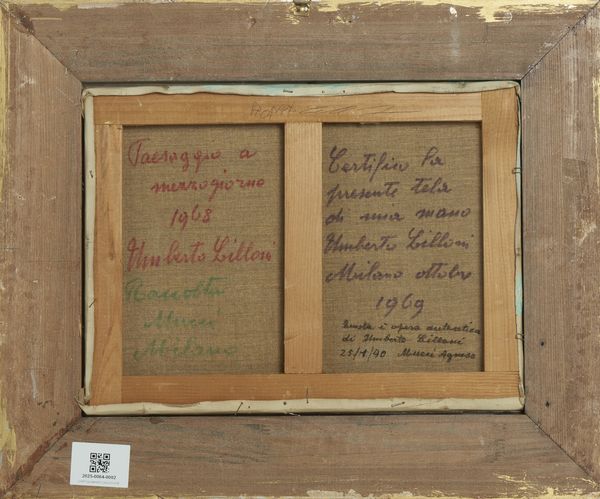 Paesaggio a
mezzogiorno
1968
Umberto Lilloni
Raccolta
Mucci
Milano
Certifico la
presente tela
di mia mano
Umberto Lilloni
Milano ottobre
1969
Questa è opera autentica
di Umberto Lilloni
25/1/90 Mucci Agnese
2025-0064-0002